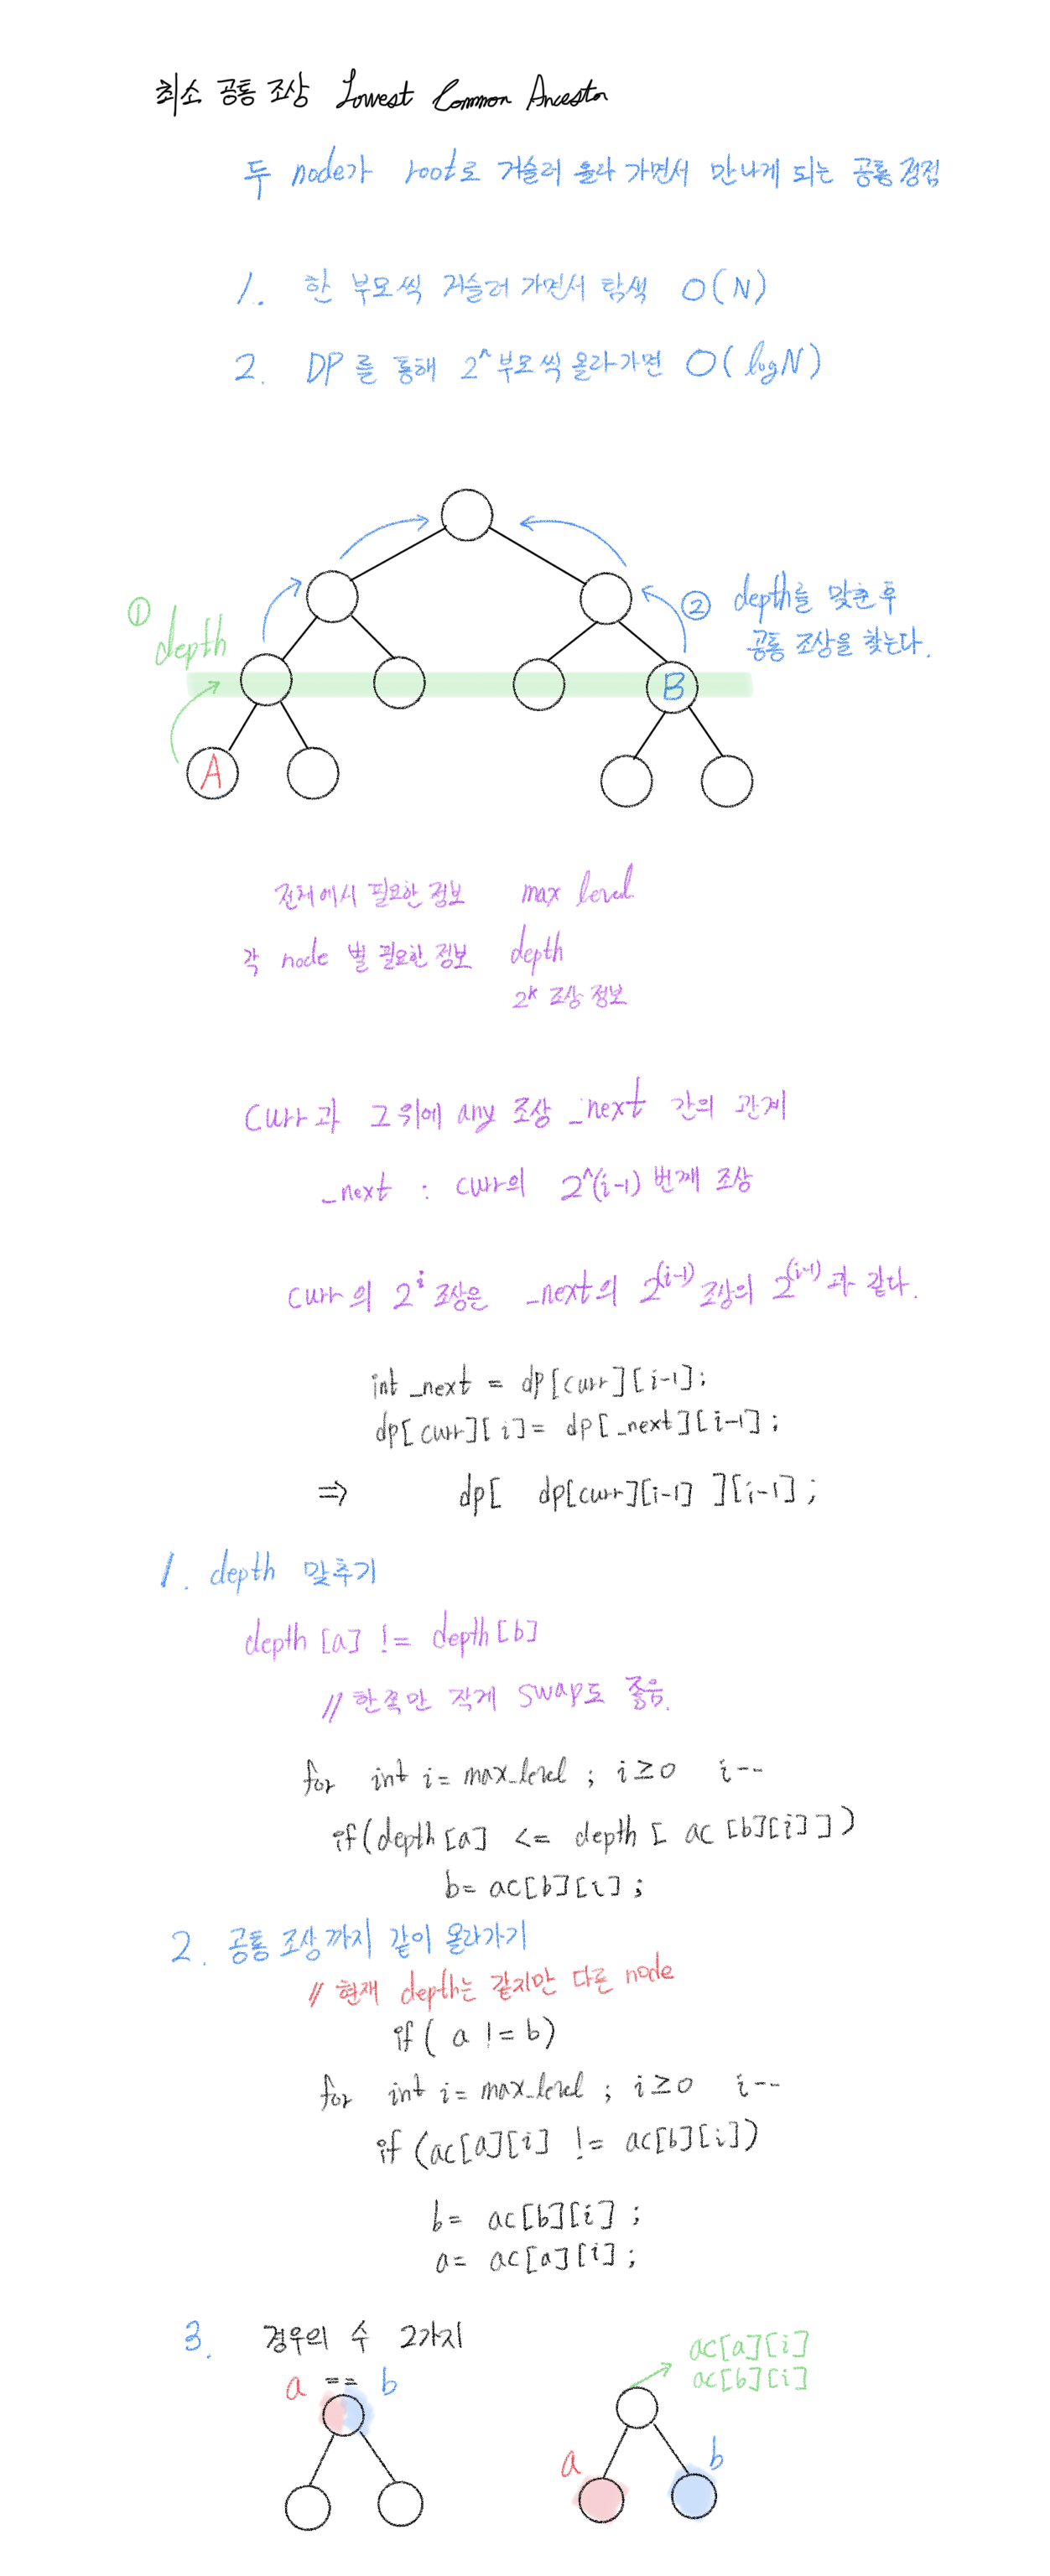 최소 공통 조상 Lowest Common Ancestor
두 node가 root로 거슬러 올라 가면서 만나게 되는 공통 정점
1. 한 부모씩 거슬러 가면서 탐색 O(N)
2. DP를 통해 2^ 부모씩 올라가면 O(logN)
① depth
② depth를 맞춘 후
공통 조상을 찾는다.
B
A
전체에서 필요한 정보 max level
각 node 별 필요한 정보 depth
2ᵏ 조상 정보
curr과 그 위에 any 조상 _next 간의 관계
_next : curr의 2^(i-1) 번째 조상
curr의 2ⁱ 조상은 _next의 2⁽ⁱ⁻¹⁾ 조상의 2⁽ⁱ⁻¹⁾과 같다.
int _next = dp[curr][i-1];
dp[curr][i] = dp[_next][i-1];
⇒ dp[ dp[curr][i-1] ][i-1];
1. depth 맞추기
depth[a] != depth[b]
// 한쪽만 작게 swap도 좋음.
for int i = max_level ; i ≥ 0 i--
if(depth[a] <= depth[ ac[b][i] ])
b = ac[b][i];
2. 공통 조상까지 같이 올라가기
// 현재 depth는 같지만 다른 node
if( a != b)
for int i = max_level ; i ≥ 0 i--
if (ac[a][i] != ac[b][i])
b = ac[b][i] ;
a = ac[a][i] ;
3. 경우의 수 2가지
a == b
ac[a][i]
ac[b][i]
a b